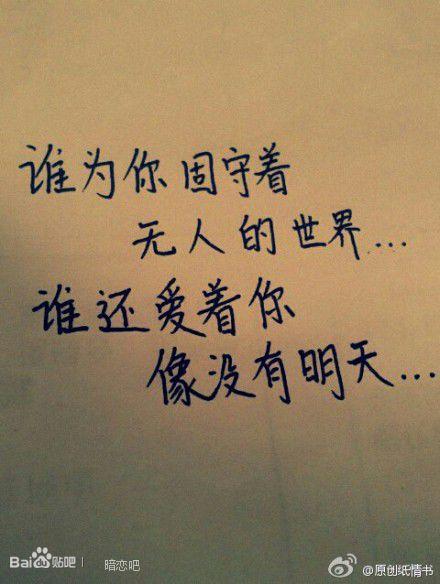 谁为你固守着
无人的世界...
谁还爱着你
像没有明天...
Bai贴吧 暗恋吧
@原创纸情书